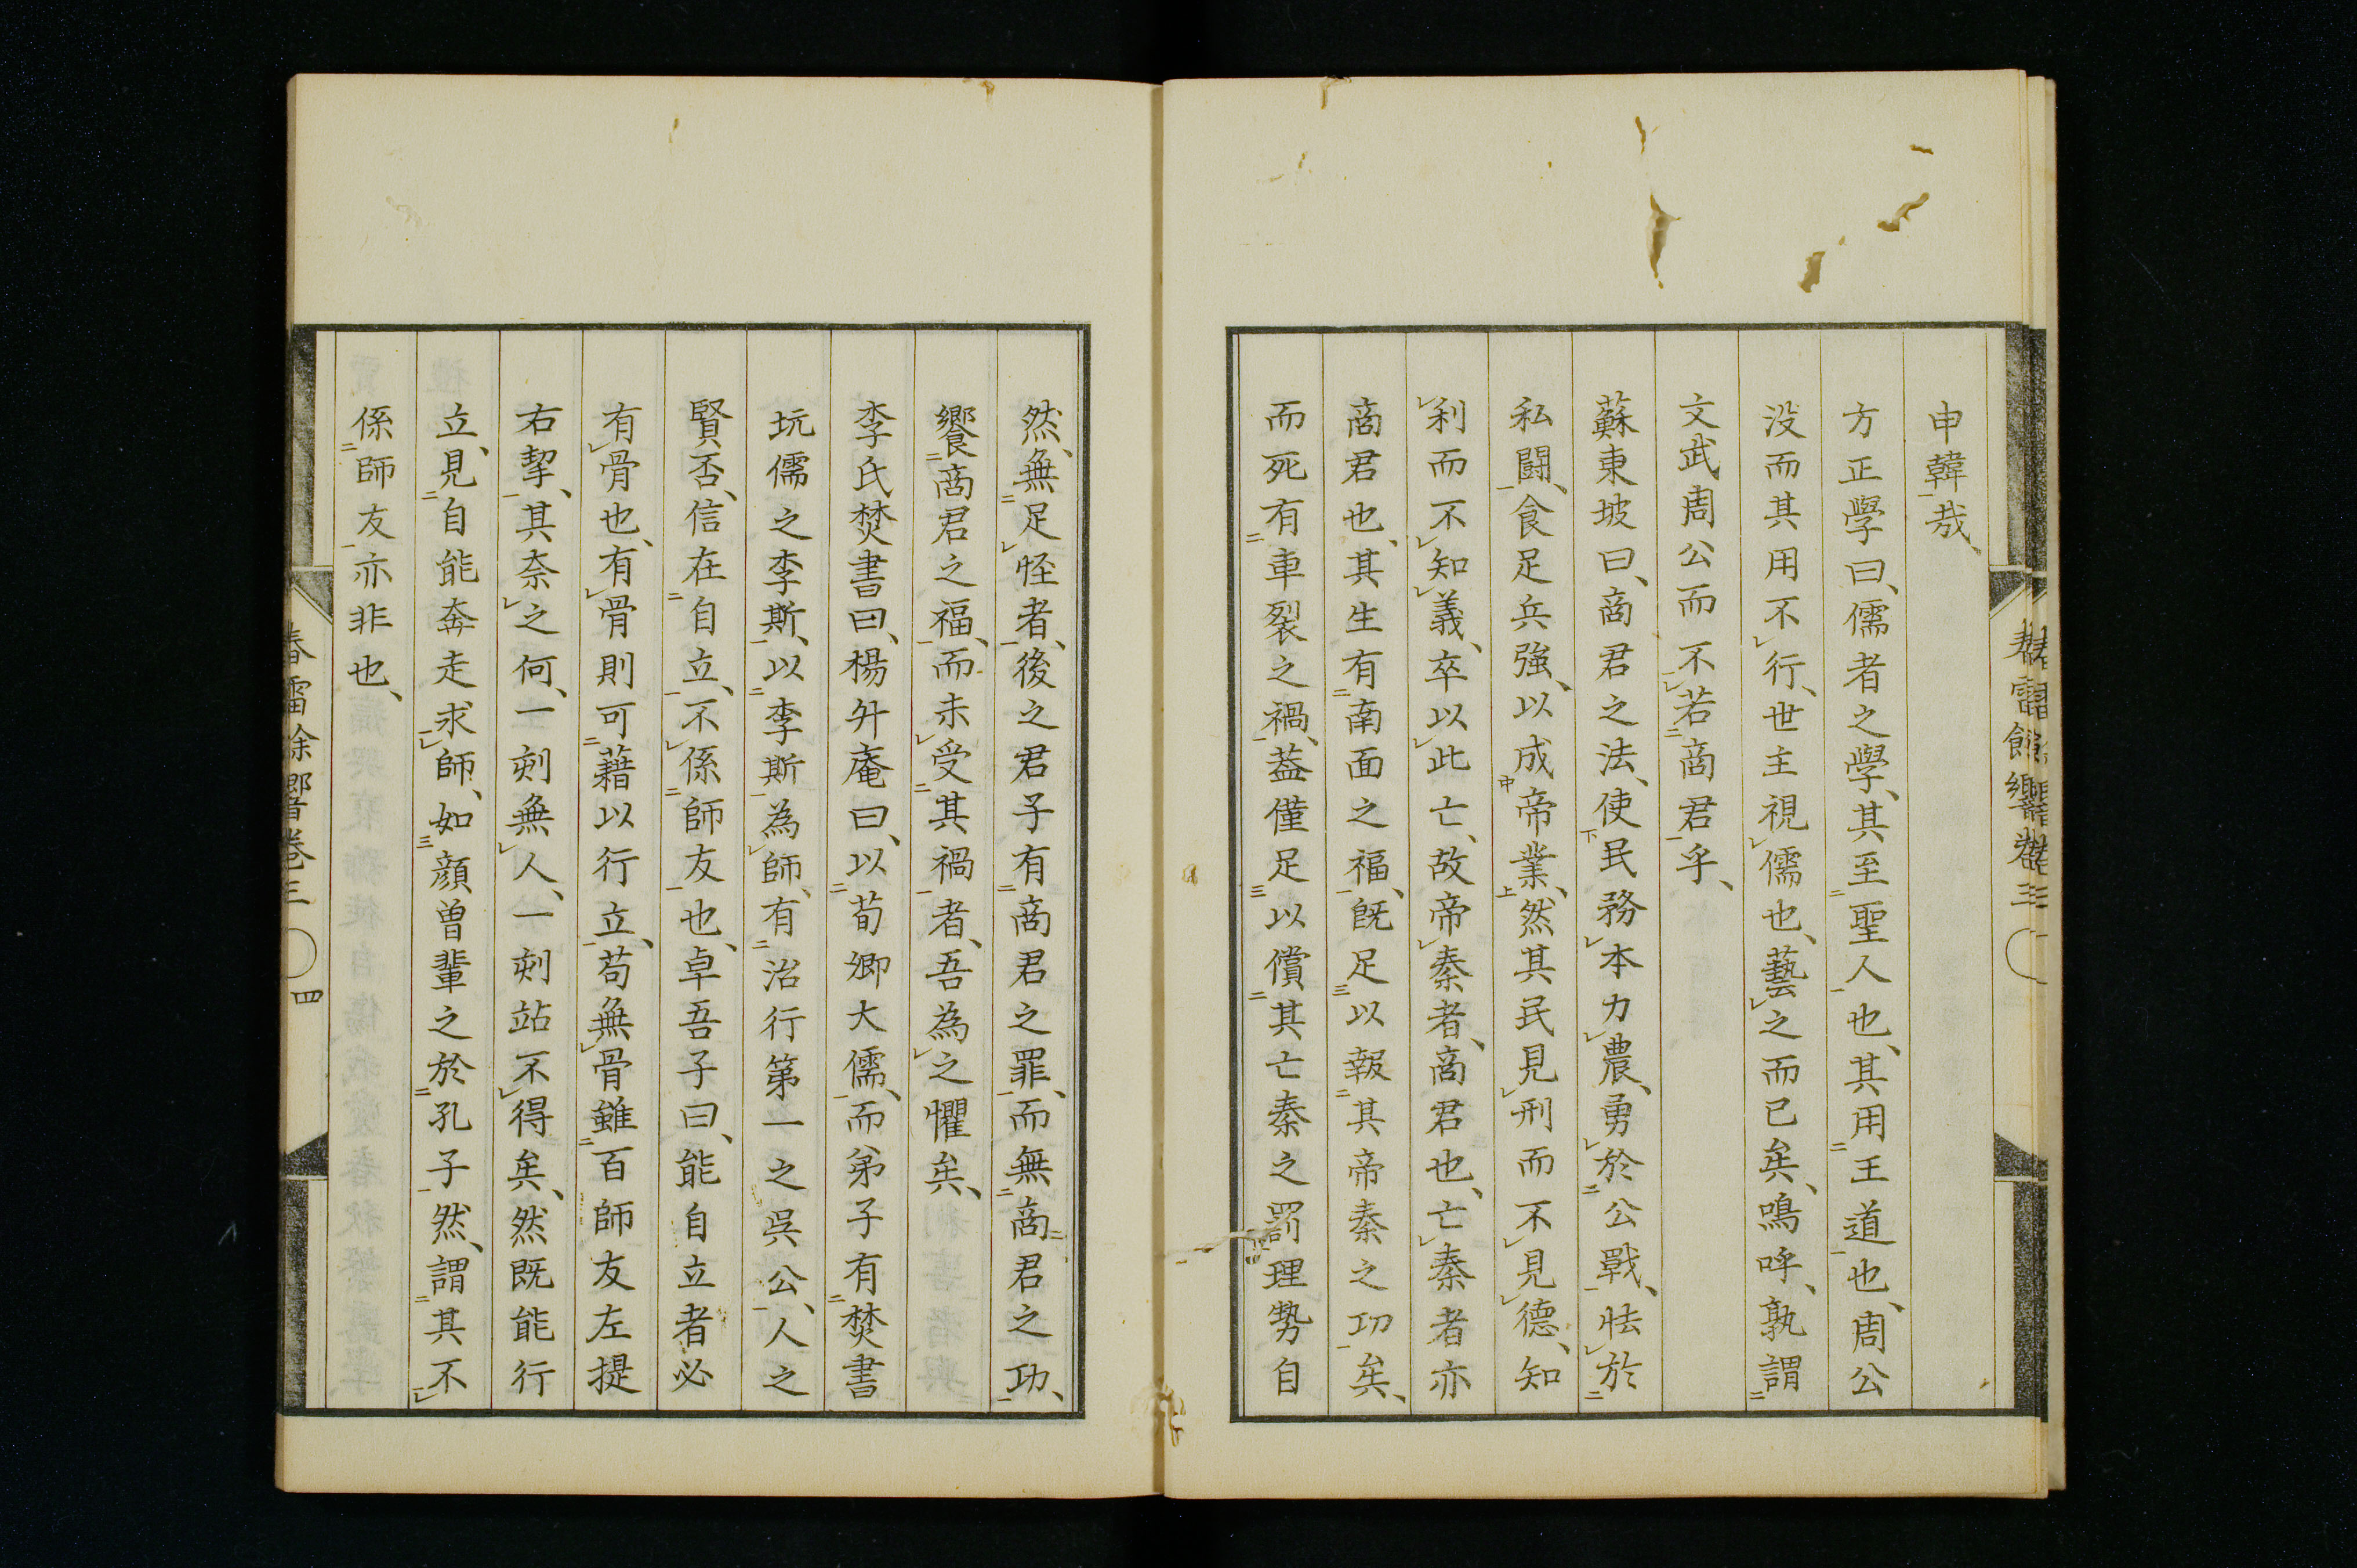 申韓哉、
方正學曰、儒者之學、其至聖人也、其用王道也、周公
没而其用不行、世主視儒也、藝之而已矣、嗚呼、孰謂
文武周公而不若商君乎、
蘇東坡曰、商君之法、使民務本力農、勇於公戰、怯於
私鬪、食足兵強、以成帝業、然其民見刑而不見德、知
利而不知義、卒以此亡、故帝秦者、商君也、亡秦者亦
商君也、其生有南面之福、既足以報其帝秦之功矣、
而死有車裂之禍、葢僅足以償其亡秦之罰理勢自
然、無足怪者、後之君子有商君之罪、而無商君之功、
饗商君之福、而未受其禍者、吾為之懼矣、
李氏焚書曰、楊升庵曰、以荀卿大儒、而弟子有焚書
坑儒之李斯、以李斯為師、有治行第一之吳公、人之
賢否、信在自立、不係師友也、卓吾子曰、能自立者必
有骨也、有骨則可藉以行立、苟無骨雖百師友左提
右挈、其奈之何、一刻無人、一刻站不得矣、然既能行
立、見自能奔走求師、如顏曾輩之於孔子然、謂其不
係師友亦非也、
春雷餘響卷三 四